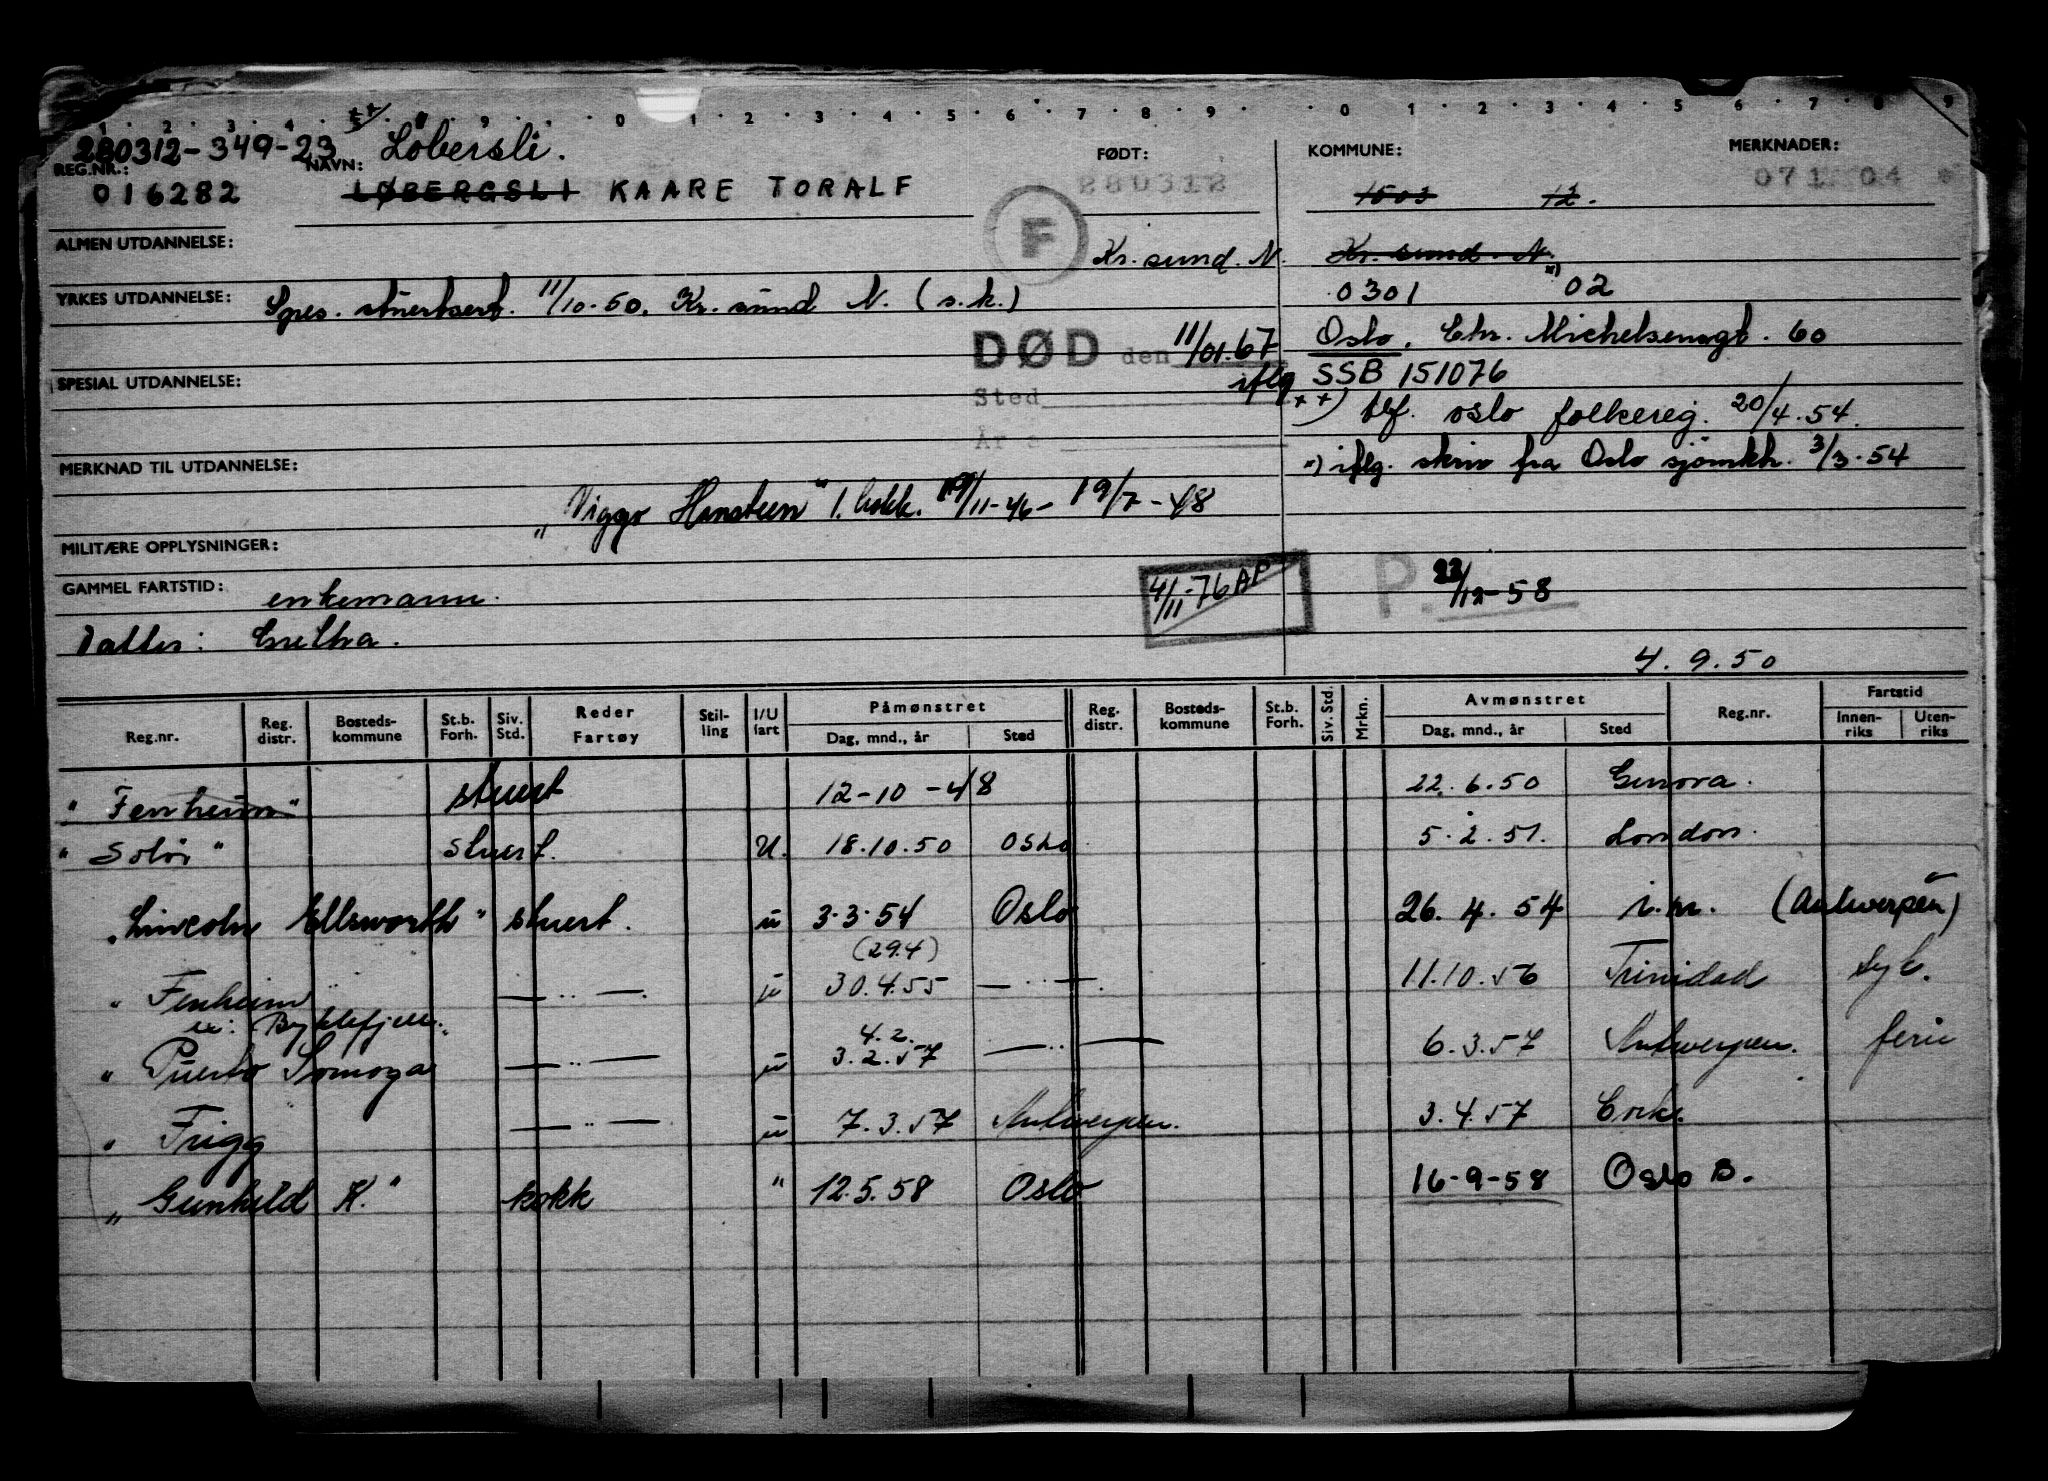 1 · 2 · 3 · 4 · 9 · 0 · 1 · 2 · 3 · 4 · 5 · 6 · 7 · 8 · 9 · 0 · 1 · 2 · 3 · 4 · 5 · 6 · 7 · 8 · 9
280312-349-23 Løbersli.
REG.NR.: NAVN: FØDT: KOMMUNE: MERKNADER:
016282 LØBERGSLI KAARE TORALF 280312 1503 12. 071 04
ALMEN UTDANNELSE: F Kr. sund. N. Kr. sund. N.
YRKES UTDANNELSE: Spes. stuertsert. 11/10-50. Kr. sund N. (s.k.) 0301 x) 02
DØD den 11/01.67 Oslo. Chr. Michelsensgt. 60
SPESIAL UTDANNELSE: Sted iflg SSB 151076
År s ++) tlf. oslo folkereg. 20/4.54.
MERKNAD TIL UTDANNELSE: x) iflg. skriv fra Oslo sjømkt. 3/3.54
"Viggo Hansteen" 1. kokk. 19/11-46 - 19/7-48
MILITÆRE OPPLYSNINGER:
GAMMEL FARTSTID: enkemann. 4/11-76 AP P. 22/12-58
Datter: Gretha.
4.9.50
Reg.nr. Reg. distr. Bosteds- kommune St.b. Forh. Siv. Std. Reder Fartøy Stil- ling I/U fart Påmønstret Dag, mnd., år Sted Reg. distr. Bosteds- kommune St.b. Forh. Siv. Std. Mrkn. Avmønstret Dag, mnd., år Sted Reg.nr. Fartstid Innen- riks Uten- riks
"Fenheim" stuert 12-10-48 22.6.50 Genova.
"Solør" stuert. U. 18.10.50 OSLO 5.2.51. London.
"Lincoln Ellsworth" stuert. u 3.3.54 Oslo 26.4.54 i.m. (Antwerpen)
(29.4)
" Fenheim — .. — . u 30.4.55 — .. — . 11.10.56 Trinidad syk.
ex: Byklefjell.
4.2.
" Puerto Somoza — .. — u 3.2.57 — .. — 6.3.57 Antwerpen. ferie
" Frigg — .. — u 7.3.57 Antwerpen. 3.4.57 Cork.
"Gunhild K." kokk " 12.5.58 Oslo 16-9-58 Oslo B.